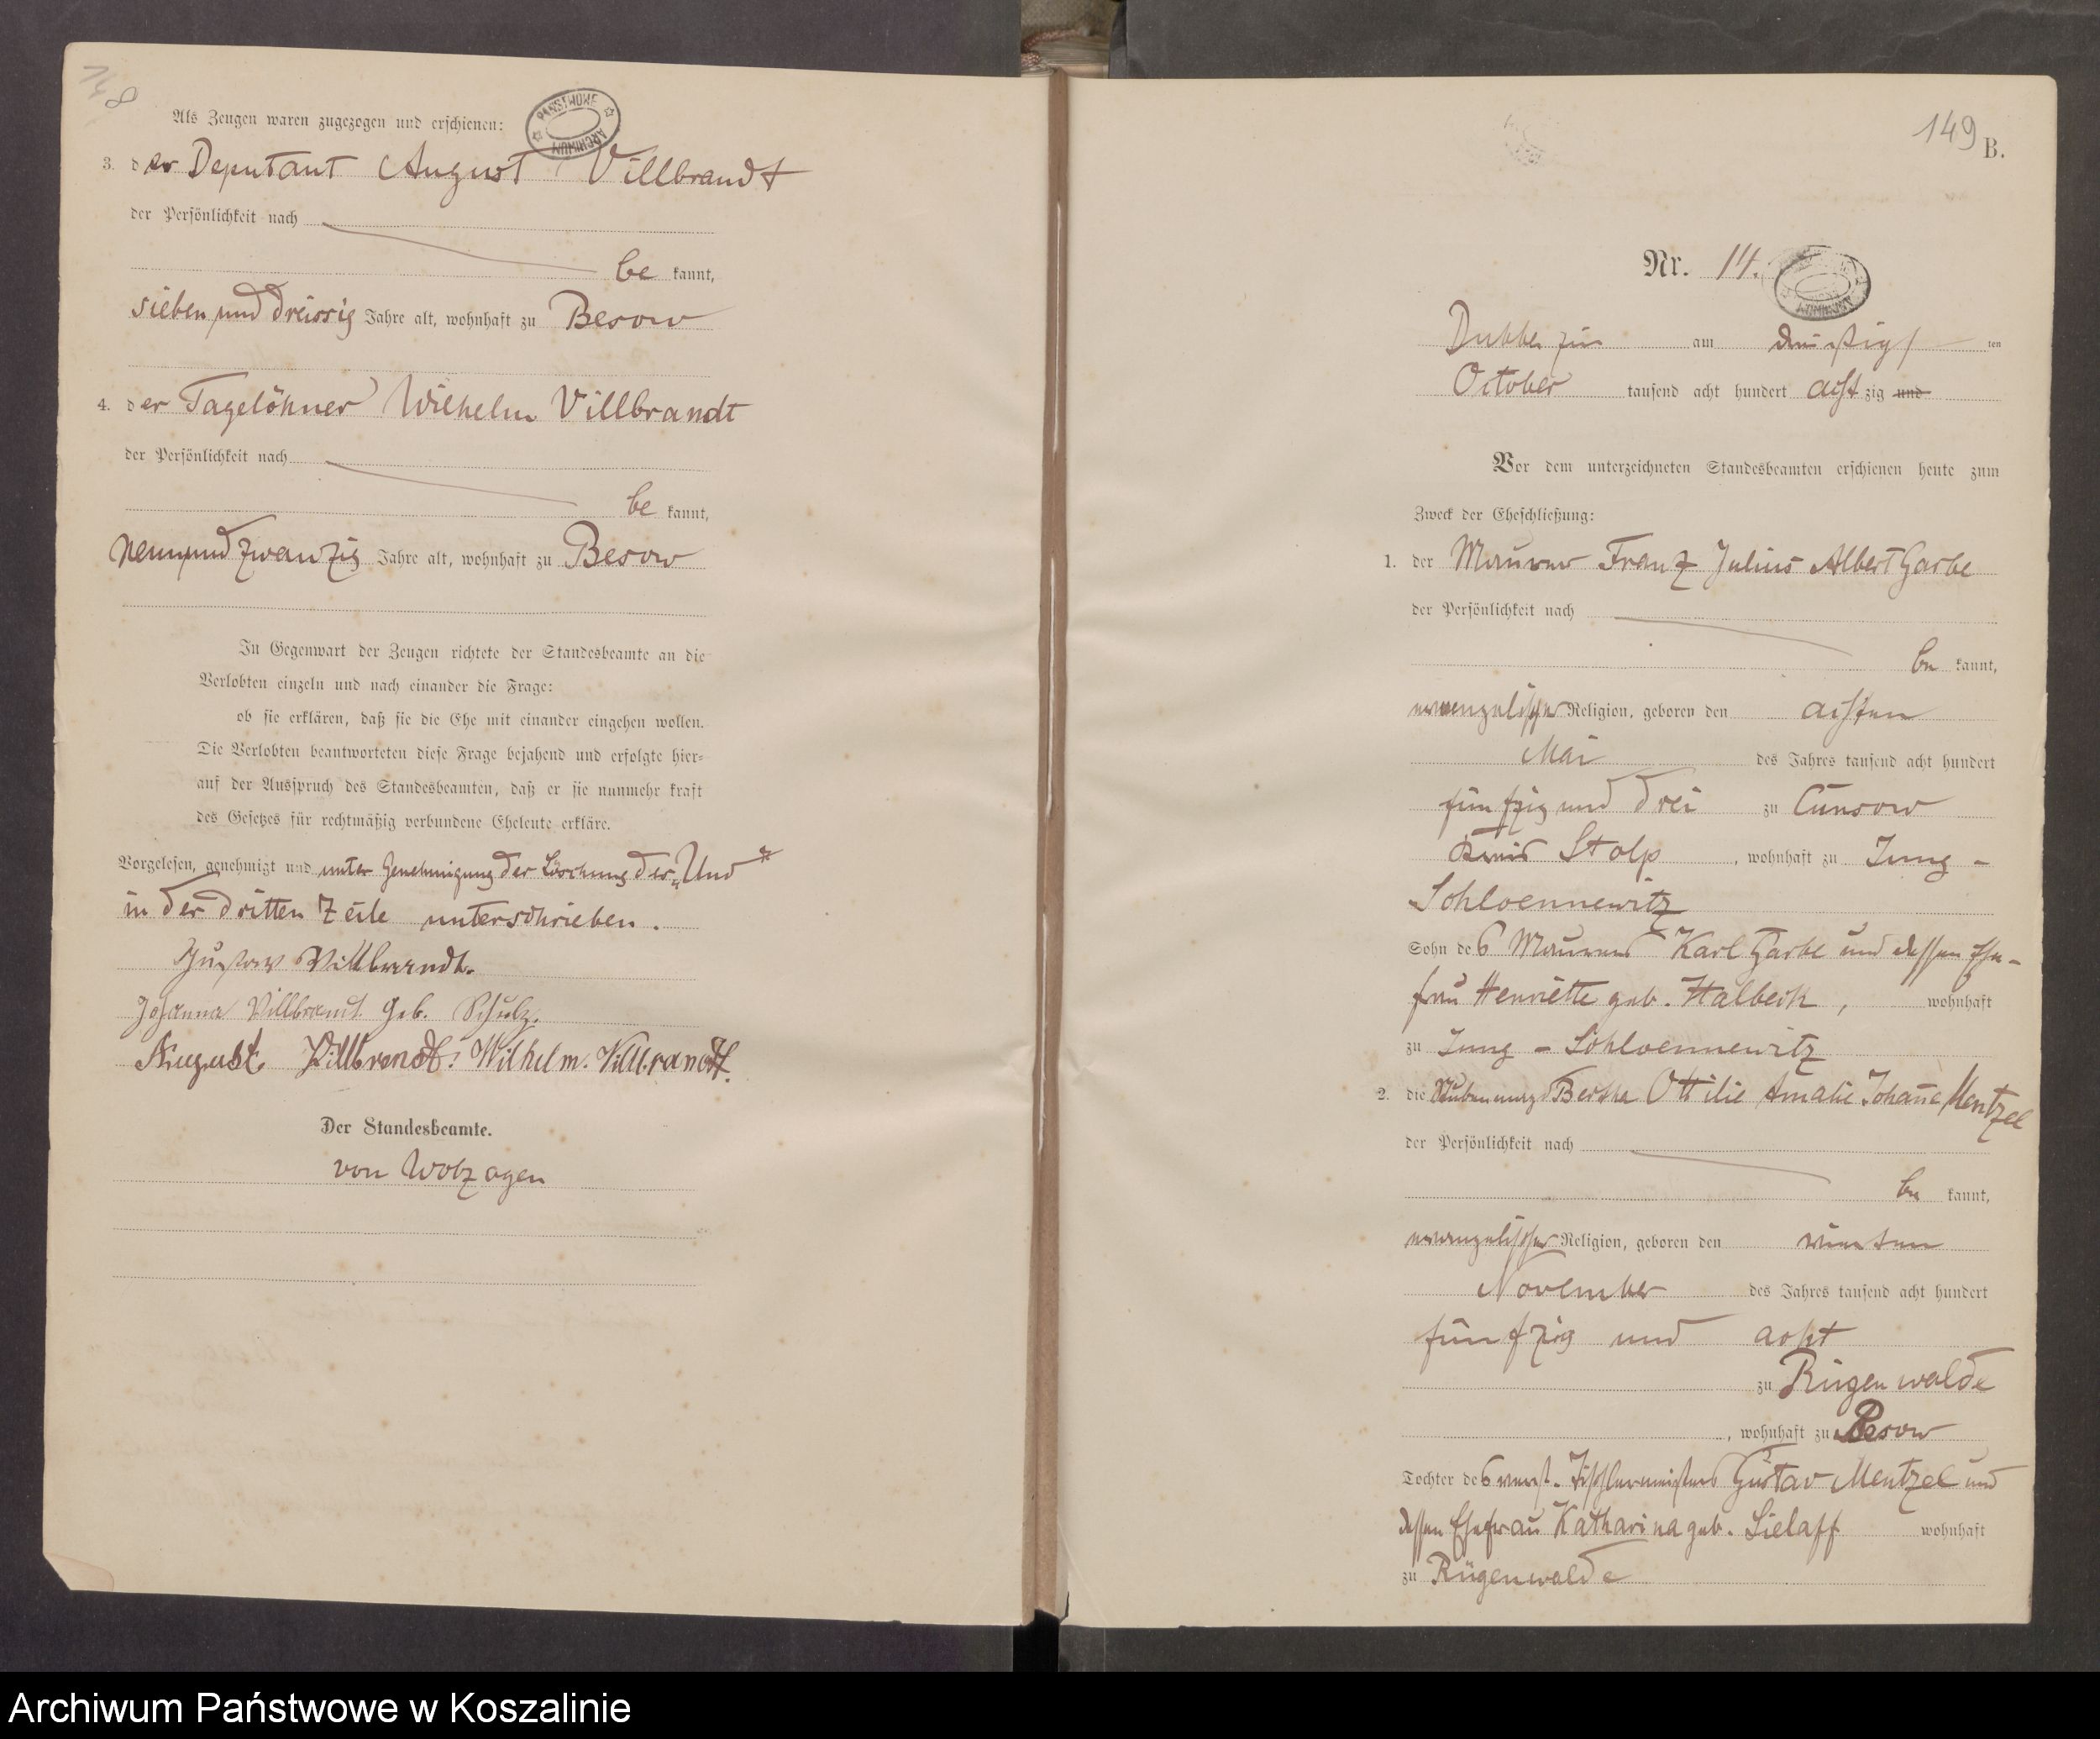 148
Als Zeugen waren zugezogen und erschienen:
PAŃSTWOWE ARCHIWUM
3. der Deputant August Villbrandt
der Persönlichkeit nach
be kannt,
sieben und dreissig Jahre alt, wohnhaft zu Besow
4. der Tagelöhner Wilhelm Villbrandt
der Persönlichkeit nach
be kannt,
neunundzwanzig Jahre alt, wohnhaft zu Besow
In Gegenwart der Zeugen richtete der Standesbeamte an die
Verlobten einzeln und nach einander die Frage:
ob sie erklären, daß sie die Ehe mit einander eingehen wollen.
Die Verlobten beantworteten diese Frage bejahend und erfolgte hier-
auf der Ausspruch des Standesbeamten, daß er sie nunmehr kraft
des Gesetzes für rechtmäßig verbundene Eheleute erkläre.
Vorgelesen, genehmigt und unter Genehmigung der Löschung des „Und“
in der dritten Zeile unterschrieben.
Gustav Villbrandt.
Johanna Villbrandt geb. Schulz.
August Villbrandt. Wilhelm. Villbrandt.
Der Standesbeamte.
von Wolzogen
149
B.
Nr. 14.
am dreißigsten
October tausend acht hundert achtzig und
Vor dem unterzeichneten Standesbeamten erschienen heute zum
Zweck der Eheschließung:
1. der Maurer Franz Julius Albert Garbe
der Persönlichkeit nach
be kannt,
evangelischer Religion, geboren den achten
Mai des Jahres tausend acht hundert
fünfzig und drei zu Cunsow
Kreis Stolp, wohnhaft zu Jung-
Schloennewitz
Sohn des Maurers Karl Garbe und dessen Ehe-
frau Henriette geb. Halbeck, wohnhaft
zu Jung-Schloennewitz
2. die Bertha Ottilie Amalie Johanne Mentzel
der Persönlichkeit nach
be kannt,
evangelischer Religion, geboren den vierten
November des Jahres tausend acht hundert
fünfzig und acht
zu Rügenwalde
, wohnhaft zu Besow
Tochter des verst. Tischlermeisters Gustav Mentzel und
dessen Ehefrau Katharina geb. Sielaff wohnhaft
zu Rügenwalde
Archiwum Państwowe w Koszalinie